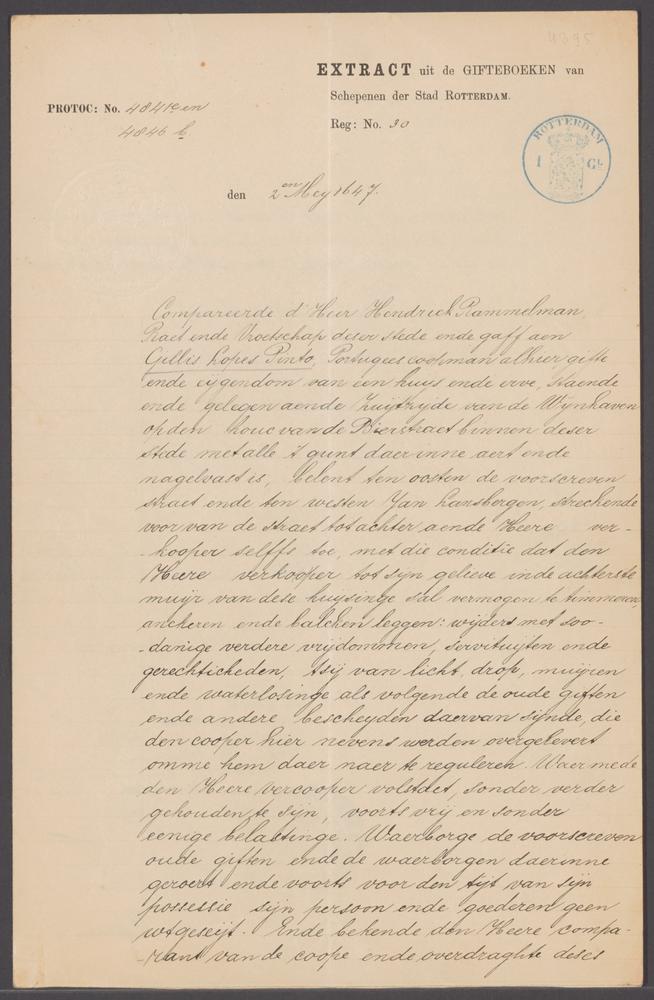 4895
EXTRACT uit de GIFTEBOEKEN van
Schepenen der Stad ROTTERDAM.
Reg: No. 30
PROTOC: No. 4841 c en
4846 b
ROTTERDAM
1 Gl.
den 2en Mey 1647.
Compareerde d'Heer Hendrick Rammelman,
Raet ende Vroetschap deser stede ende gaff aen
Gillis Lopes Pinto, Portugees coopman alhier, gifte
ende eijgendom van een huys ende erve, staende
ende gelegen aende Zuijtzijde van de Wijnhaven
op den houc van de Bierstraet binnen deser
stede met alle 't gunt daer inne aert ende
nagelvast is, belent ten oosten de voorscreven
straet ende ten westen Jan Lansbergen, streckende
voor van de straet tot achter aende Heere ver-
-kooper selffs toe, met die conditie dat den
Heere verkooper tot sijn gelieve inde achterste
muijr van dese huysinge sal vermogen te timmeren,
anckeren ende balcken leggen: wijders met soo-
-danige verdere vrijdommen, servituijten ende
gerechticheden, tsij van licht, drop, muijren
ende waterlosinge als volgende de oude giften
ende andere bescheyden daervan sijnde, die
den cooper hier nevens werden overgelevert
omme hem daer naer te reguleren. Waer mede
den Heere vercooper volstaet, sonder verder
gehouden te sijn, voorts vrij en sonder
eenige belastinge. Waerborge de voorscreven
oude giften ende de waerborgen daerinne
geroert ende voorts voor den tijt van sijn
possessie sijn persoon ende goederen geen
uytgeseijt. Ende bekende den Heere compa-
-rant van de coope ende overdraghte deses